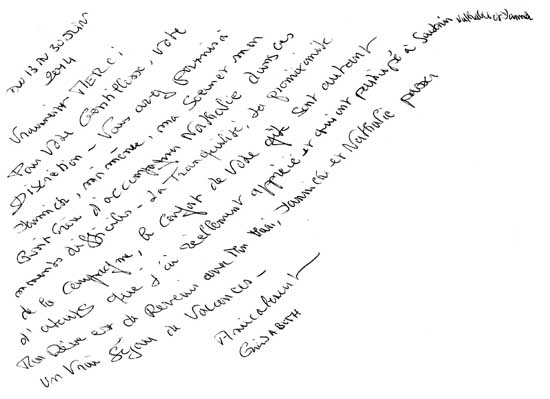 DU 13 AU 30 JUIN
2014
Vraiment MERCI
Pour Votre Gentillesse, Votre
Discrétion - Vous avez permis à
Jannick, ma mère, ma Soeur et mon
d'accompagner Nathalie dans ces
moments difficiles - La Tranquilité, La proximité
de la Campagne, le Confort de Votre gîte sont autant
d'atouts que j'ai réellement apprécié et qui ont participé à Soutenir Nathalie et Jannick
Mon Rêve est de Revenir avec Mon Mari, Jannick et Nathalie passer
un Vrai Séjour de Vacances -
Amicalement